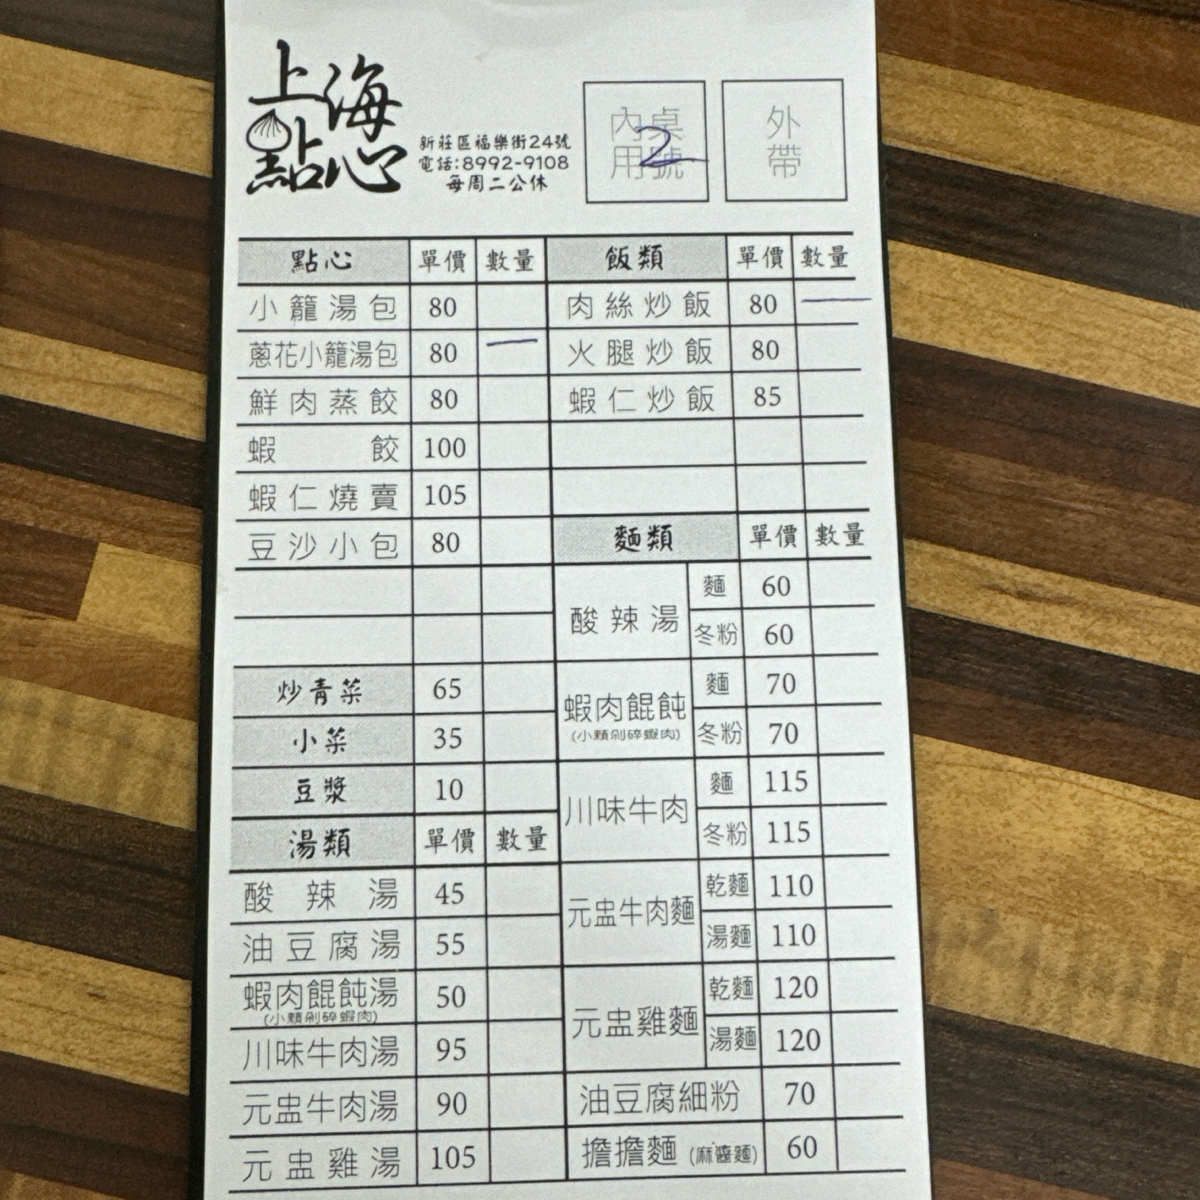 上海
點心
新莊區福樂街24號
電話:8992-9108
每周二公休
內用 桌號
2
外帶
點心 單價 數量 飯類 單價 數量
小籠湯包 80 肉絲炒飯 80 一
蔥花小籠湯包 80 一 火腿炒飯 80
鮮肉蒸餃 80 蝦仁炒飯 85
蝦餃 100
蝦仁燒賣 105
豆沙小包 80 麵類 單價 數量
酸辣湯 麵 60
冬粉 60
炒青菜 65 蝦肉餛飩 麵 70
(小顆剁碎蝦肉)
小菜 35 冬粉 70
豆漿 10 川味牛肉 麵 115
湯類 單價 數量 冬粉 115
酸辣湯 45 元盅牛肉麵 乾麵 110
油豆腐湯 55 湯麵 110
蝦肉餛飩湯 50 元盅雞麵 乾麵 120
(小顆剁碎蝦肉)
川味牛肉湯 95 湯麵 120
元盅牛肉湯 90 油豆腐細粉 70
元盅雞湯 105 擔擔麵 (麻醬麵) 60